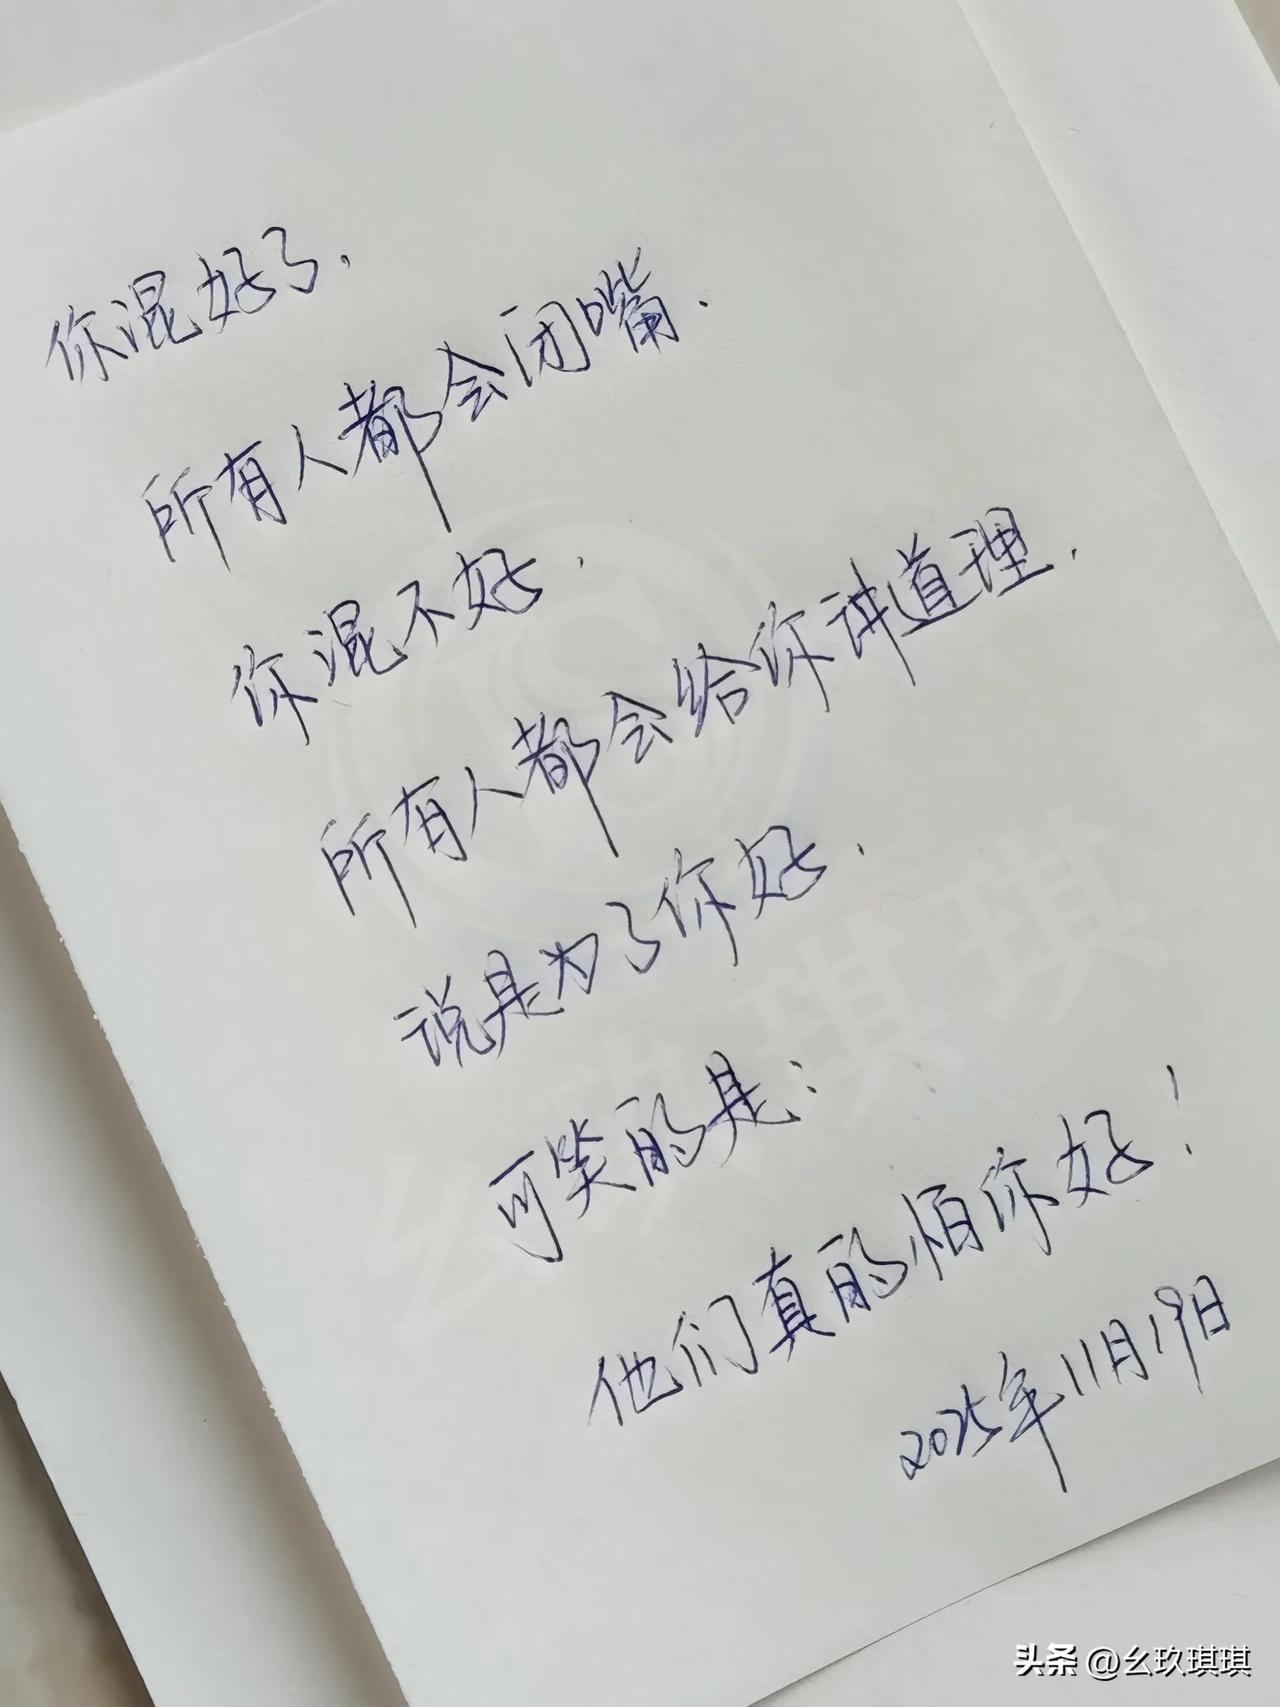 你混好了.
所有人都会闭嘴.
你混不好.
所有人都会给你讲道理.
说是为了你好.
可笑的是:
他们真的怕你好!
2025年11月19日
幺玖琪琪
头条 @幺玖琪琪